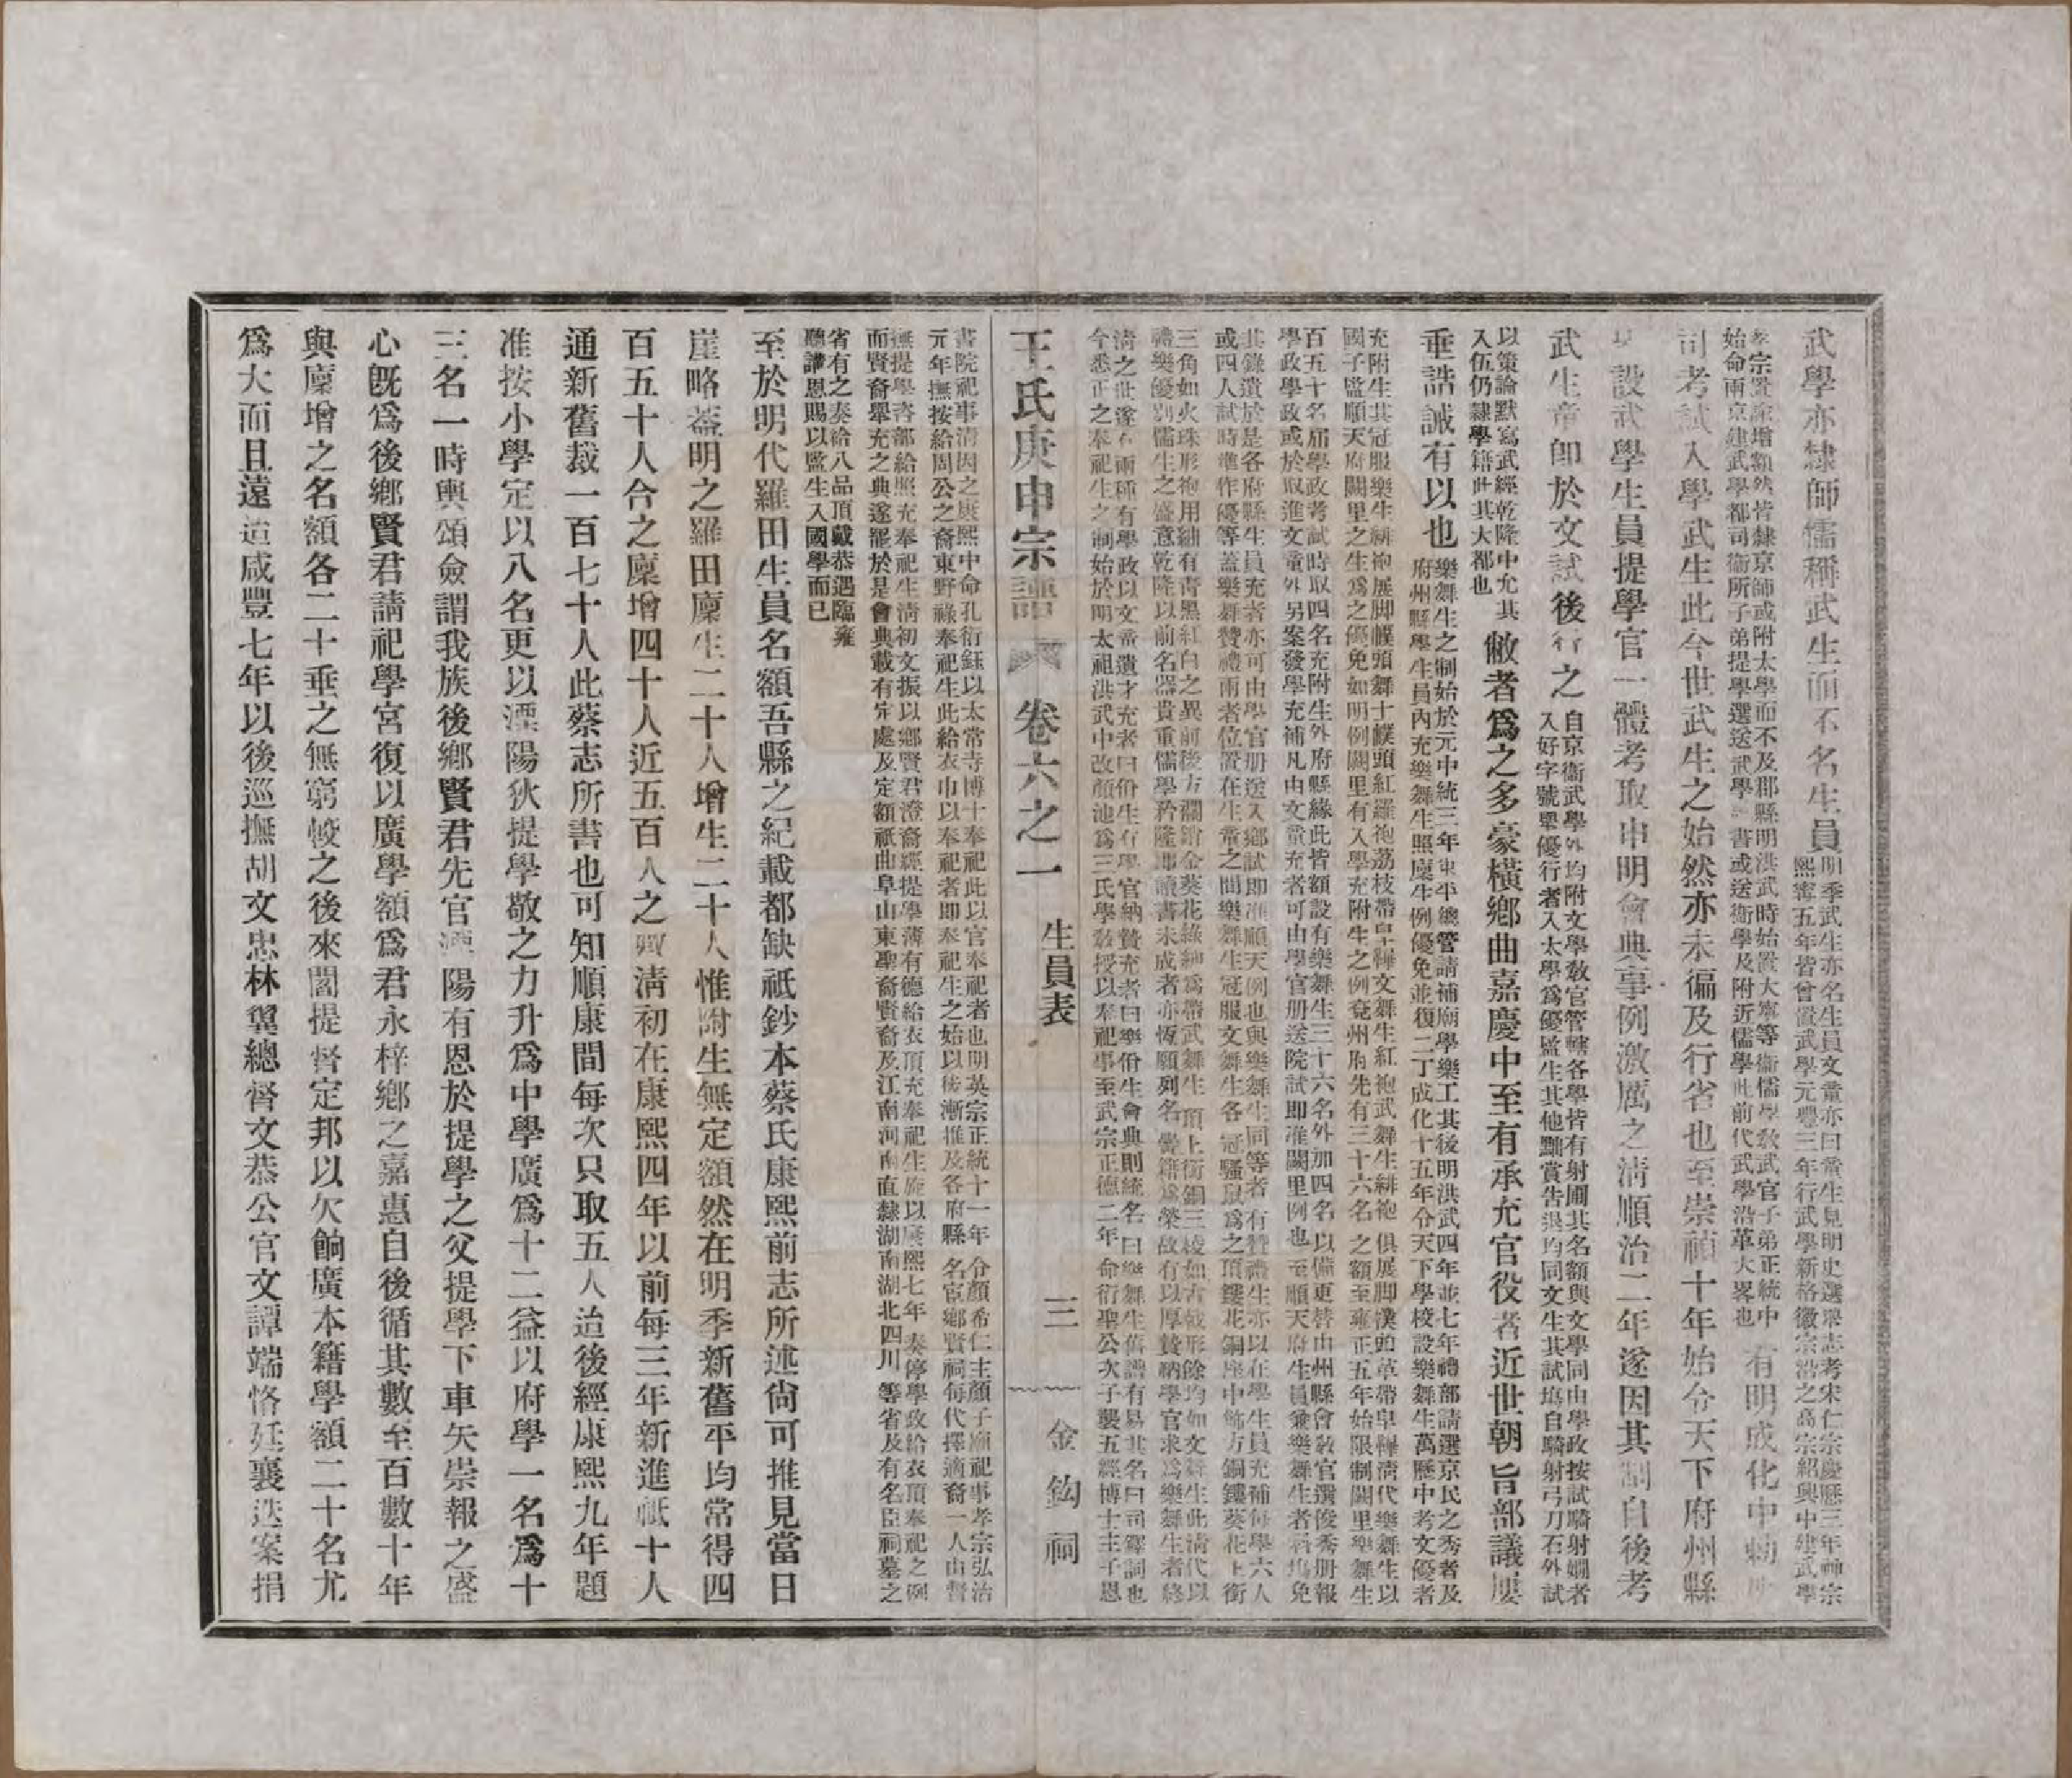 武學亦隸師儒稱武生而不名生員明季武生亦名生員文童亦曰童生見明史選舉志考宋仁宗慶歷三年神宗
熙寧五年皆曾置武學元豐三年行武學新格徽宗沿之高宗紹興中建武學
宗置 增額然皆隸京師或附太學而不及郡縣明洪武時始置大寧等衞儒學敎武官子弟正統中
始命兩京建武學都司衞所子弟提學選送武學 書或送衞學及附近儒學此前代武學沿革大畧也有明成化中勅所
司考試入學武生此今世武生之始然亦未徧及行省也至崇禎十年始令天下府州縣
設武學生員提學官一體考取申明會典事例激厲之淸順治二年遂因其制自後考
武生童卽於文試後行之自京衞武學外均附文學敎官管轄各學皆有射圃其名額與文學同由學政按試騎射嫺者
入好字號舉優行者入太學爲優監生其他黜賞告 均同文生其試塲自騎射弓刀石外試
以策論默寫武經乾隆中允其
入伍仍隸學籍此其大都也敝者爲之多豪橫鄉曲嘉慶中至有承充官役者近世朝旨部議屢
垂誥誡有以也樂舞生之制始於元中統三年東平總管請補廟學樂工其後明洪武四年並七年禮部請選京民之秀者及
府州縣學生員內充樂舞生照廩生例優免並復二丁成化十五年分天下學校設樂舞生萬歷中考文優者
充附生其冠服樂生緋袍展脚幞頭舞士幞頭紅羅袍荔枝帶皁鞾文舞生紅袍武舞生緋袍俱展脚幞頭革帶皁鞾淸代樂舞生以
國子監順天府闕里之生爲之優免如明例闕里有入學充附生之例兗州府先有三十六名之額至雍正五年始限制闕里樂舞生
百五十名屆學政考試時取四名充附生外府縣緣此皆額設有樂舞生三十六名外加四名以備更替由州縣會敎官選俊秀册報
學政學政或於取進文童外另案發學充補凡由文童充者可由學官册送院試卽准闕里例也至順天府生員兼樂舞生者 塢免
其錄遺於是各府縣生員充者亦可由學官册送入鄉試卽准順天例也與樂舞生同等者有贊禮生亦以在學生員充補每學六人
或四人試時準作優等蓋樂舞贊禮兩者位置在生童之間樂舞生冠服文舞生各冠騷鼠爲之頂鏤花銅座中飾方銅鏤葵花上銜
三角如火珠形袍用紬有靑黑紅白之異前後方襴銷金葵花綠紬爲帶武舞生頂上銜銅三棱如古戟形餘均如文舞生此淸代以
禮樂優別儒生之盛意乾隆以前名器貴重儒學矜隆卽讀書未成者亦恆願列名黌籍爲榮故有以厚贄納學官求爲樂舞生者終
淸之世遂有兩種有學政以文童遺才充者曰佾生有學官納贄充者曰樂佾生會典則統名曰樂舞生舊譜有易其名曰司鐸詞也
今悉正之奉祀生之制始於明太祖洪武中改顏池爲三氏學敎授以奉祀事至武宗正德二年命衍聖公次子襲五經博士主子思
王氏庚申宗譜 卷六之一 生員表 三 金鈎祠
書院祀事淸因之康熙中命孔衍鈺以太常寺博士奉祀此以官奉祀者也明英宗正統十一年分顏希仁主顏子廟祀事孝宗弘治
元年撫按給周公之裔東野祿奉祀生此給衣巾以奉祀者卽奉祀生之始以後漸推及各府縣名宦鄉賢祠每代擇適裔一人由督
撫提學咨部給照充奉祀生淸初文振以鄉賢君澄裔經提學薄有德給衣頂充奉祀生旋以康熙七年奏停學政給衣頂奉祀之例
而賢裔舉充之典遂罷於是會典載有定處及定額祇曲阜山東聖裔賢裔及江南河南直隸湖南湖北四川等省及有名臣祠墓之
省有之奏給八品頂戴恭遇臨雍
聽講恩賜以監生入國學而已
至於明代羅田生員名額吾縣之紀載都缺祇鈔本蔡氏康熙前志所述尙可推見當日
崖略葢明之羅田廩生二十人增生二十人惟附生無定額然在明季新舊平均常得四
百五十人合之廩增四十人近五百人之 淸初在康熙四年以前每三年新進祇十人
通新舊裁一百七十人此蔡志所書也可知順康間每次只取五人迨後經康熙九年題
准按小學定以八名更以溧陽狄提學敬之力升爲中學廣爲十二益以府學一名爲十
三名一時輿頌僉謂我族後鄉賢君先官溧陽有恩於提學之父提學下車矢崇報之盛
心旣爲後鄉賢君請祀學宮復以廣學額爲君永梓鄉之嘉惠自後循其數至百數十年
與廩增之名額各二十垂之無窮較之後來閣提督定邦以欠餉廣本籍學額二十名尤
爲大而且遠迨咸豐七年以後巡撫胡文忠林翼總督文恭公官文譚端恪廷襄迭案捐